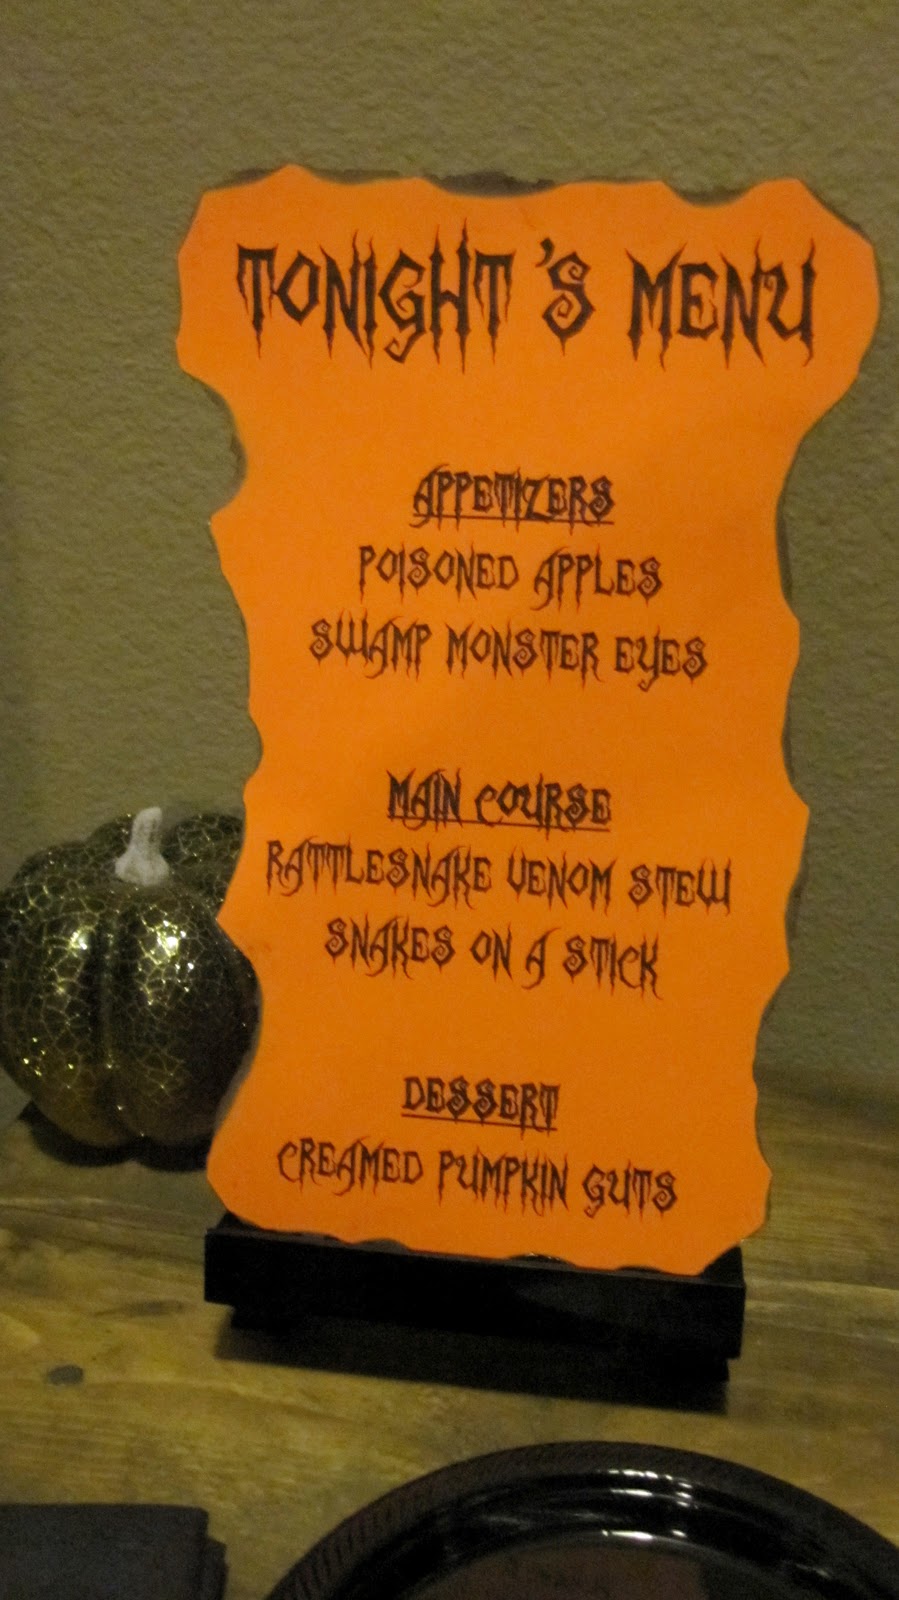 TONIGHT'S MENU
APPETIZERS
POISONED APPLES
SWAMP MONSTER EYES
MAIN COURSE
RATTLESNAKE VENOM STEW
SNAKES ON A STICK
DESSERT
CREAMED PUMPKIN GUTS